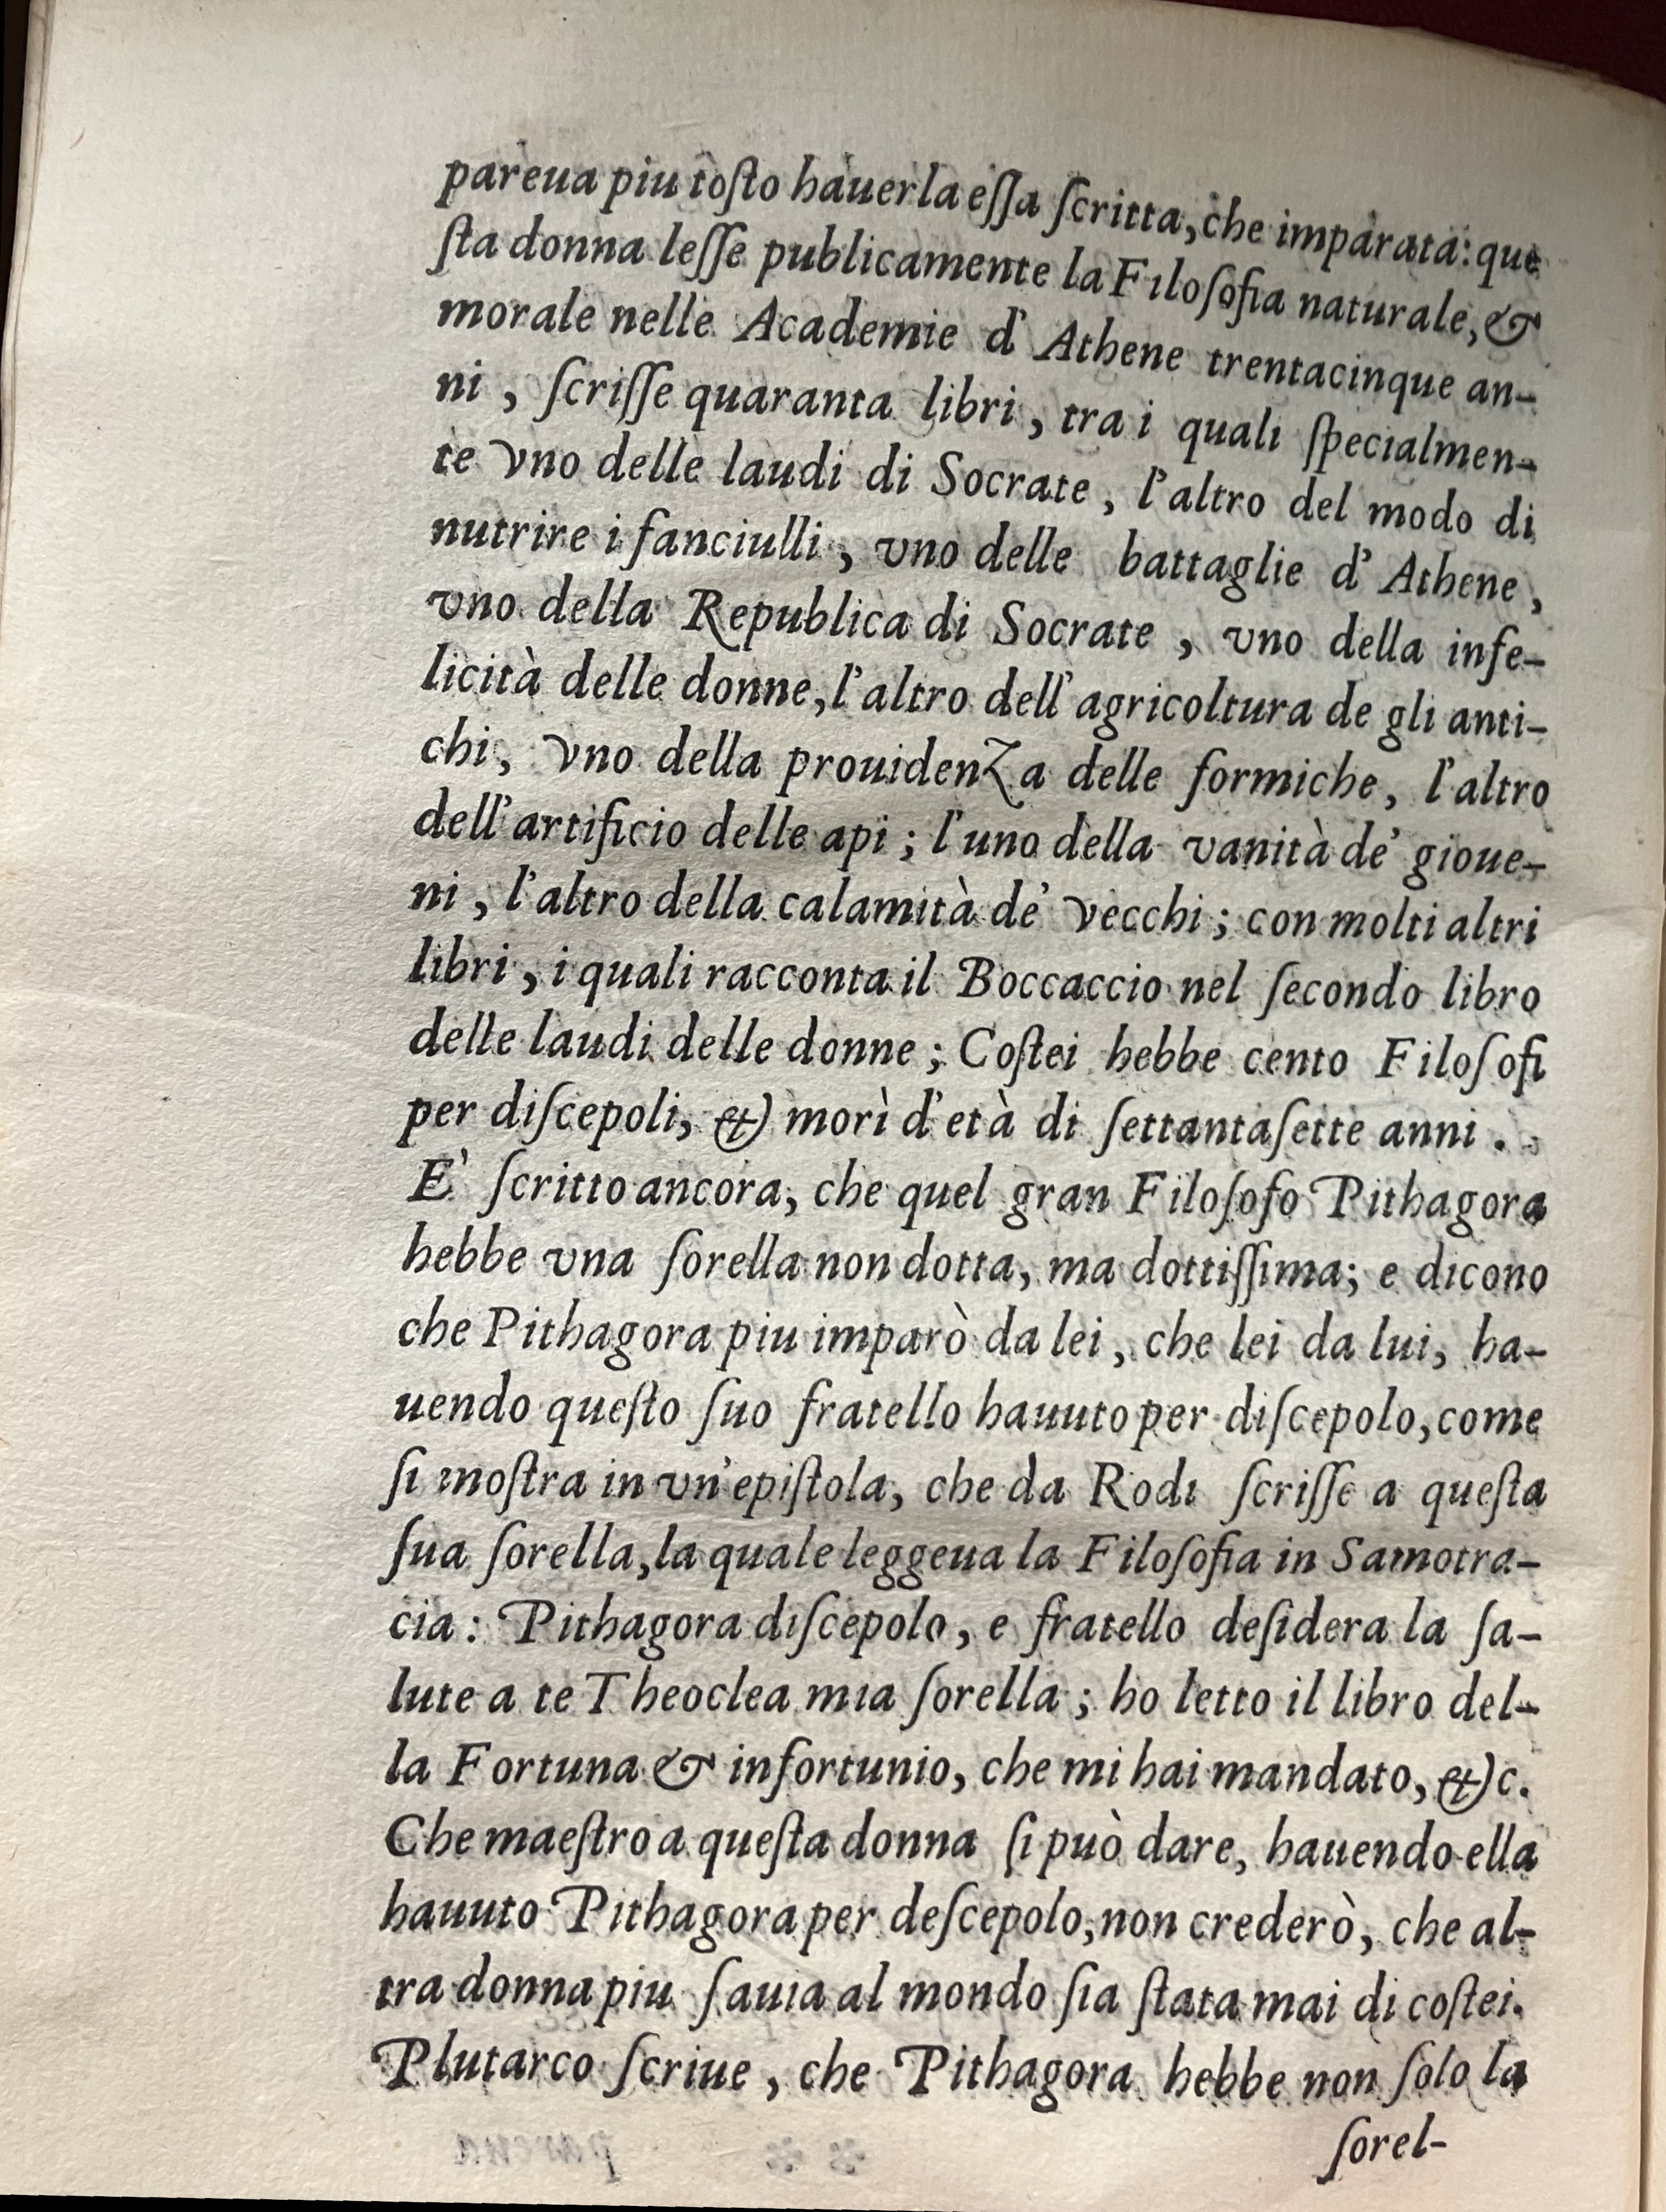 pareua piu tosto hauerla essa scritta, che imparata: que
sta donna lesse publicamente la Filosofia naturale, &
morale nelle Academie d' Athene trentacinque an-
ni, scrisse quaranta libri, tra i quali specialmen-
te vno delle laudi di Socrate, l'altro del modo di
nutrire i fanciulli, vno delle battaglie d' Athene,
vno della Republica di Socrate, vno della infe-
licità delle donne, l'altro dell'agricoltura de gli anti-
chi, vno della prouidenza delle formiche, l'altro
dell'artificio delle api; l'uno della vanità de' gioue-
ni, l'altro della calamità de' vecchi; con molti altri
libri, i quali racconta il Boccaccio nel secondo libro
delle laudi delle donne; Costei hebbe cento Filosofi
per discepoli, & morì d'età di settantasette anni.
E' scritto ancora, che quel gran Filosofo Pithagora
hebbe vna sorella non dotta, ma dottissima; e dicono
che Pithagora piu imparò da lei, che lei da lui, ha-
uendo questo suo fratello hauuto per discepolo, come
si mostra in vn'epistola, che da Rodi scrisse a questa
sua sorella, la quale leggeua la Filosofia in Samotra-
cia: Pithagora discepolo, e fratello desidera la sa-
lute a te Theoclea mia sorella; ho letto il libro del-
la Fortuna & infortunio, che mi hai mandato, &c.
Che maestro a questa donna si può dare, hauendo ella
hauuto Pithagora per descepolo, non crederò, che al-
tra donna piu sauia al mondo sia stata mai di costei.
Plutarco scriue, che Pithagora hebbe non solo la
sorel-